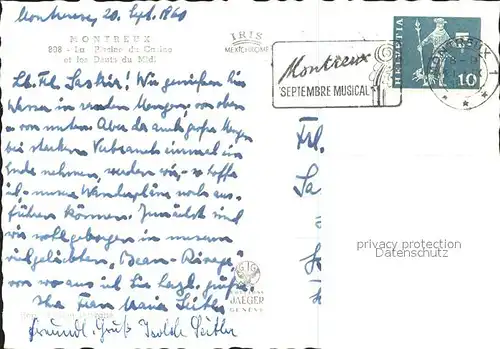 Montreux, 20. Sept. 1960
MONTREUX
808 - La Piscine du Casino
et les Dents du Midi
IRIS
MEXICHROME
Montreux
SEPTEMBRE MUSICAL
HELVETIA
10
MONTREUX
Lb. Frl. Saskia! Wir genießen hier
Wasser in rauhen Mengen, von oben
u. von unten. Aber da auch große Mengen
bei starkem Verbrauch einmal ein
Ende nehmen, werden wir, so hoffe
ich, unsere Wanderpläne noch aus-
führen können. Zunächst sind
wir wohlgeborgen in unserem
vielgeliebten "Beau-Rivage",
von wo aus ich Sie herzl. grüße.
Ihre Frau Maria
Freundl. Gruß
Frl.
Sa
JAEGER
GENÈVE
privacy protection
Datenschutz